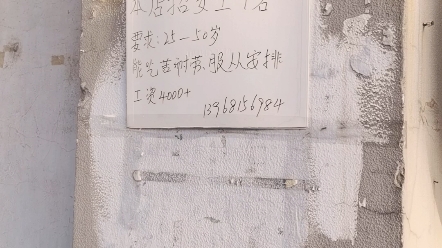 本店招女工1名
要求:25—50岁
能吃苦耐劳.服从安排
工资4000+
13968156984